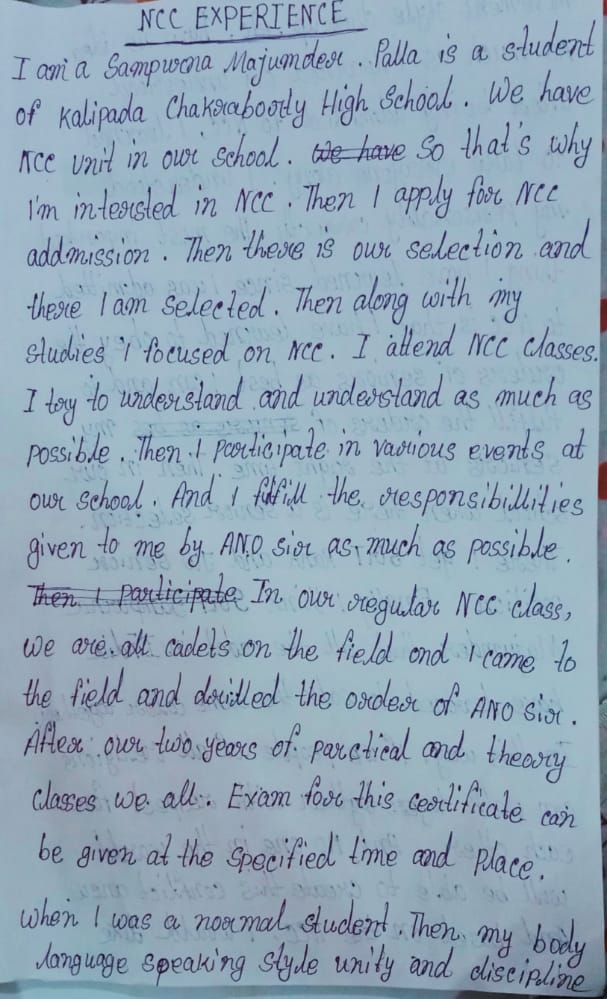 NCC EXPERIENCE
I am a Sampurna Majumder. Palla is a student
of Kalipada Chakraborty High School. We have
NCC unit in our school. We have So that's why
I'm intersted in NCC. Then I apply for NCC
addmission. Then there is our selection and
there I am selected. Then along with my
studies I focused on NCC. I attend NCC classes.
I try to understand and understand as much as
possible. Then I participate in various events at
our school. And I fulfill the responsibillities
given to me by ANO sir as much as possible.
Then I participate In our regular NCC class,
we are all cadets on the field ond I came to
the field and drilled the order of ANO sir.
After our two years of parctical and theory
classes we all. Exam for this certificate can
be given at the specified time and place.
When I was a normal student. Then my body
language speaking style unity and discipline